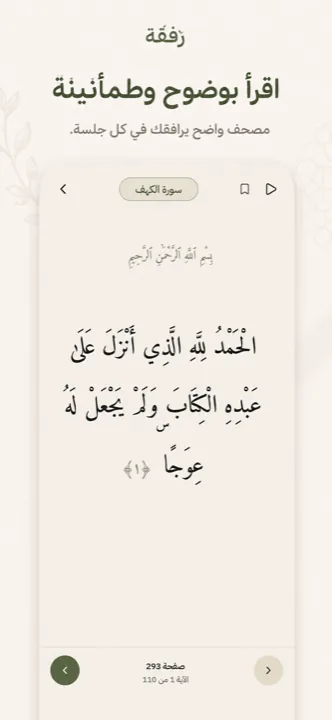 رفقة
اقرأ بوضوح وطمأنينة
مصحف واضح يرافقك في كل جلسة.
سورة الكهف
بِسْمِ ٱللَّهِ ٱلرَّحْمَٰنِ ٱلرَّحِيمِ
الْحَمْدُ لِلَّهِ الَّذِي أَنْزَلَ عَلَىٰ
عَبْدِهِ الْكِتَابَ وَلَمْ يَجْعَلْ لَهُ
عِوَجًا ۜ ﴿١﴾
صفحة 293
الآية 1 من 110